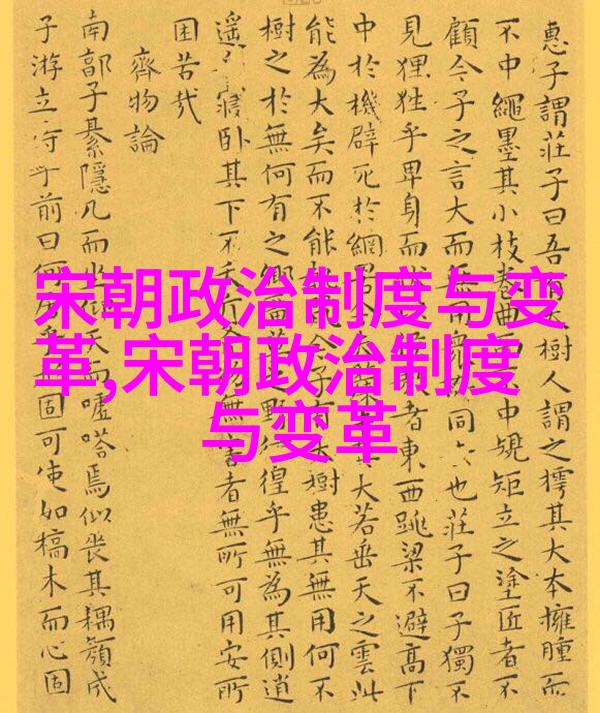 宋朝政治制度与变
革,宋朝政治制度
与变革
惠子謂莊子曰吾大樹人謂之樗其大本擁腫而
不中繩墨其小枝卷曲中規矩立之塗匠者不
顧今子之言大而無用同也莊子曰子獨不
見狸狌乎卑身而者東西跳梁不避高下
中於機辟死於網大若垂天之雲此
能為大矣而不能今子有大樹患其無用何不
樹之於無何有之鄉野徨乎無為其側逍
遥寢卧其下不物無害者無所可用安所
困苦哉
齊物論
南郭子綦隱几而坐天而噓嗒焉似喪其耦顏成
子游立侍乎前曰固可使如槁木而心固